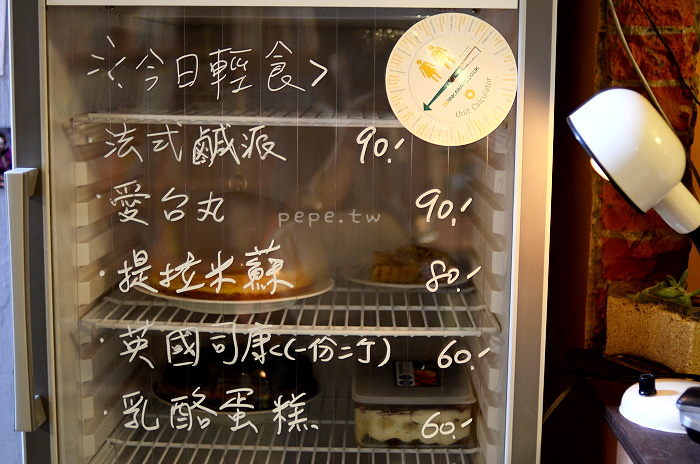 今日輕食>
法式鹹派 90.-
·愛台丸 90.-
·提拉米蘇 80.-
·英國可康<(一份二丁) 60.-
·乳酪蛋糕 60.-
pepe.tw
Unit Calculator